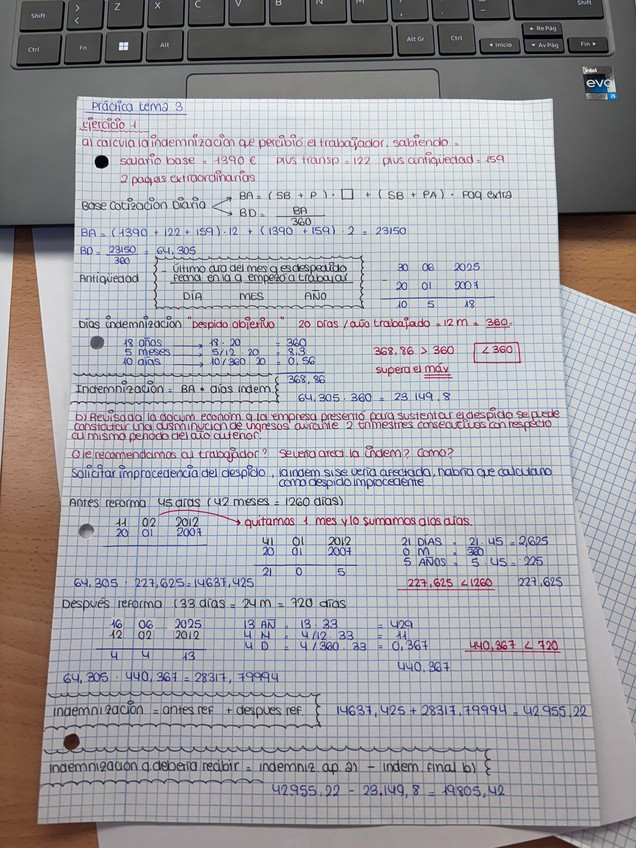 Shift
Z
X
C
V
B
N
M
Shift
Ctrl
Fn
Alt
Alt Gr
Ctrl
Inicio
Re Pág
Av Pág
Fin
intel
evo
i5
Práctica tema 3
Ejercicio 1
a) calcula la indemnización que percibió el trabajador, sabiendo =
salario base = 1390 € plus transp = 122 plus antigüedad = 159
2 pagas extraordinarias
Base cotización Diaria
BA = (SB + P) · □ + (SB + PA) · Pag extra
BD = BA / 360
BA = (1390 + 122 + 159) · 12 + (1390 + 159) · 2 = 23150
BD = 23150 / 360 = 64,305
Antigüedad
- Último día del mes q es despedido
fecha en la q empezó a trabajar
DÍA MES AÑO
30 06 2025
- 20 01 2007
10 5 18
Días indemnización "despido objetivo" 20 Días / año trabajado = 12 m = 360.
18 años → 18 · 20 = 360
5 meses → 5/12 · 20 = 8,3
10 días → 10/360 20 = 0,56
368,86
368,86 > 360 < 360
supera el máx
Indemnización = BA · días indem
64,305 · 360 = 23149,8
b) Revisada la docum. econom. q la empresa presentó para sustentar el despido se puede
constatar una disminución de ingresos durante 2 trimestres consecutivos con respecto
al mismo periodo del año anterior.
Q le recomendamos al trabajador? Se vería afect la indem? Como?
Solicitar improcedencia del despido, la indem si se vería afectada, habría que calcularlo
como despido improcedente
Antes reforma 45 días (42 meses = 1260 días)
11 02 2012
20 01 2007
→ quitamos 1 mes y lo sumamos a los días.
41 01 2012
20 01 2007
21 0 5
21 DÍAS = 21 · 45 = 2,625
0 M = 360
5 AÑOS = 5 · 45 = 225
64,305 · 227,625 = 14637,425
227,625 < 1260 227,625
Después reforma (33 días = 24 m = 720 días
16 06 2025
12 02 2012
4 4 13
13 AÑ = 13 · 33 = 429
4 M = 4/12 · 33 = 11
4 D = 4/360 · 33 = 0,367
440,367
440,367 < 720
64,305 · 440,367 = 28317,79994
Indemnización = antes ref + despues ref.
14637,425 + 28317,79994 = 42.955,22
Indemnización q debería recibir = indemniz ap. a) - indem. final b)
42955,22 - 23.149,8 = 19805,42